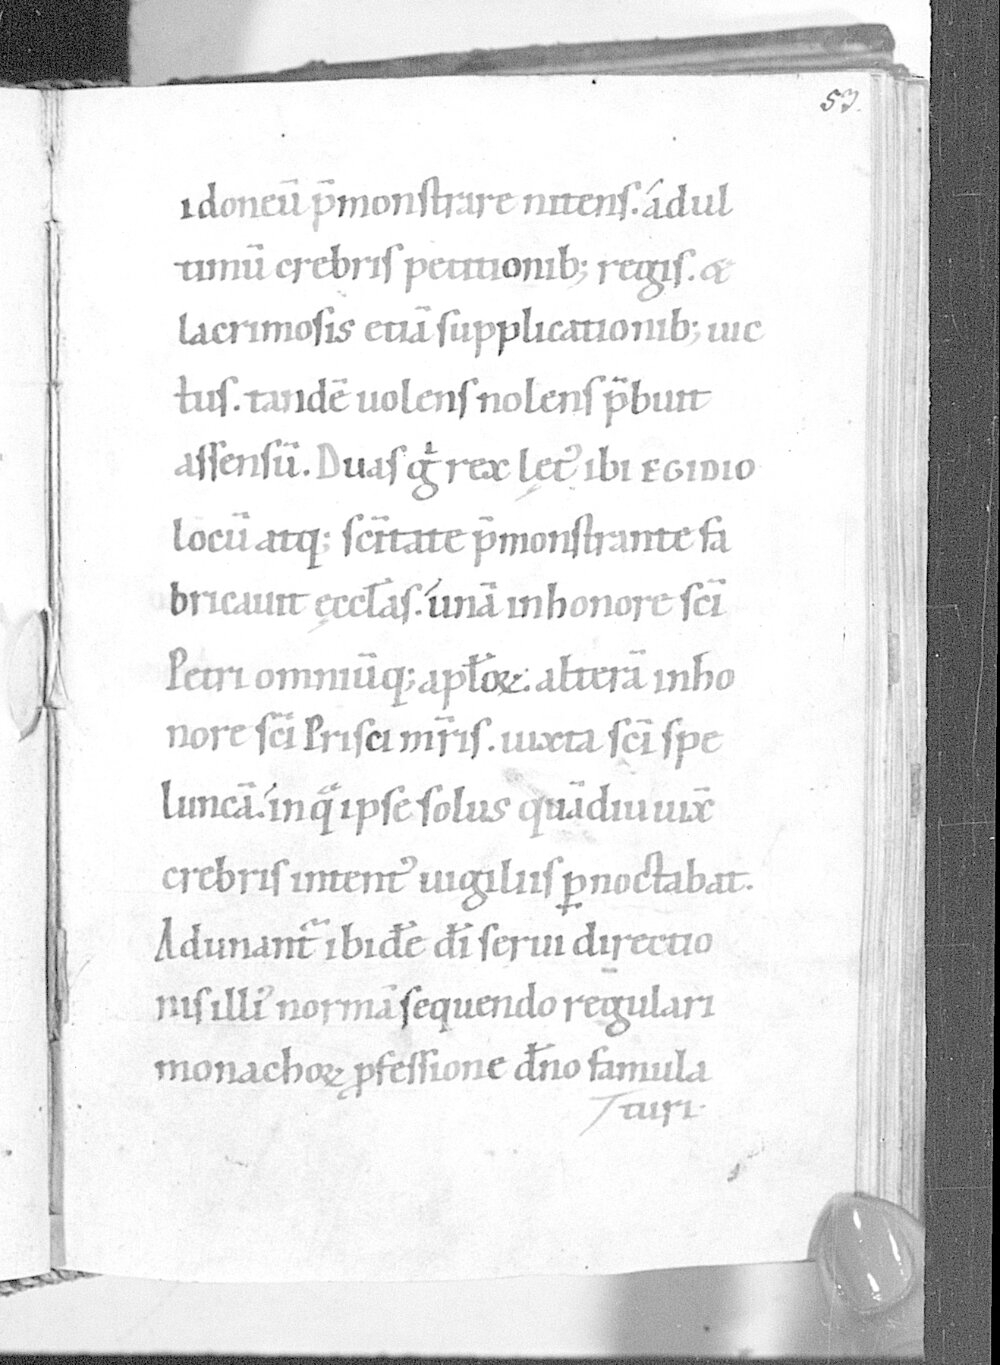 53.
idoneū p̄monstrare nitens. ád ul
timū crebris petitionib; regis. &
lacrimosis etiā supplicationib; uic
tus. tandē uolens nolens p̄buit
assensū. Duas gͥ rex letꝰ ibi EGIDIO
locū atq; sc̄itate p̄monstrante fa
bricauit ęccl̄as. únā in honore sc̄i
Petri omniūq; apl̄oꝝ. alterā in ho
nore sc̄i Prisci mr̄is. iuxta sc̄i spe
luncā. ín qͣ ipse solus quādiu uix̄
crebris intentꝰ uigiliis ꝑnoctabat.
Adunant᷑ ibidē dī serui directio
nis illiꝰ normā sequendo regulari
monachoꝝ ꝓfessione dn̄o famula
turi.